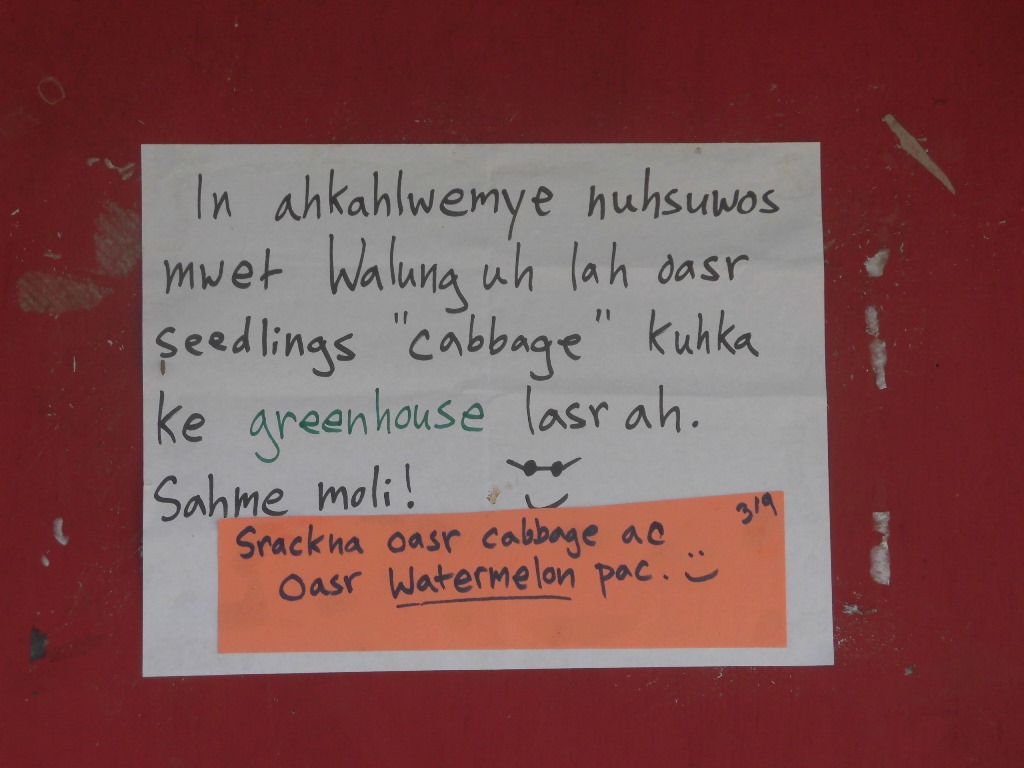 In ahkahlwemye nuhsuwos
mwet Walung uh lah oasr
seedlings "cabbage" kuhka
ke greenhouse lasr ah.
Sahme moli!
3/9
Srackna oasr cabbage ac
oasr Watermelon pac.